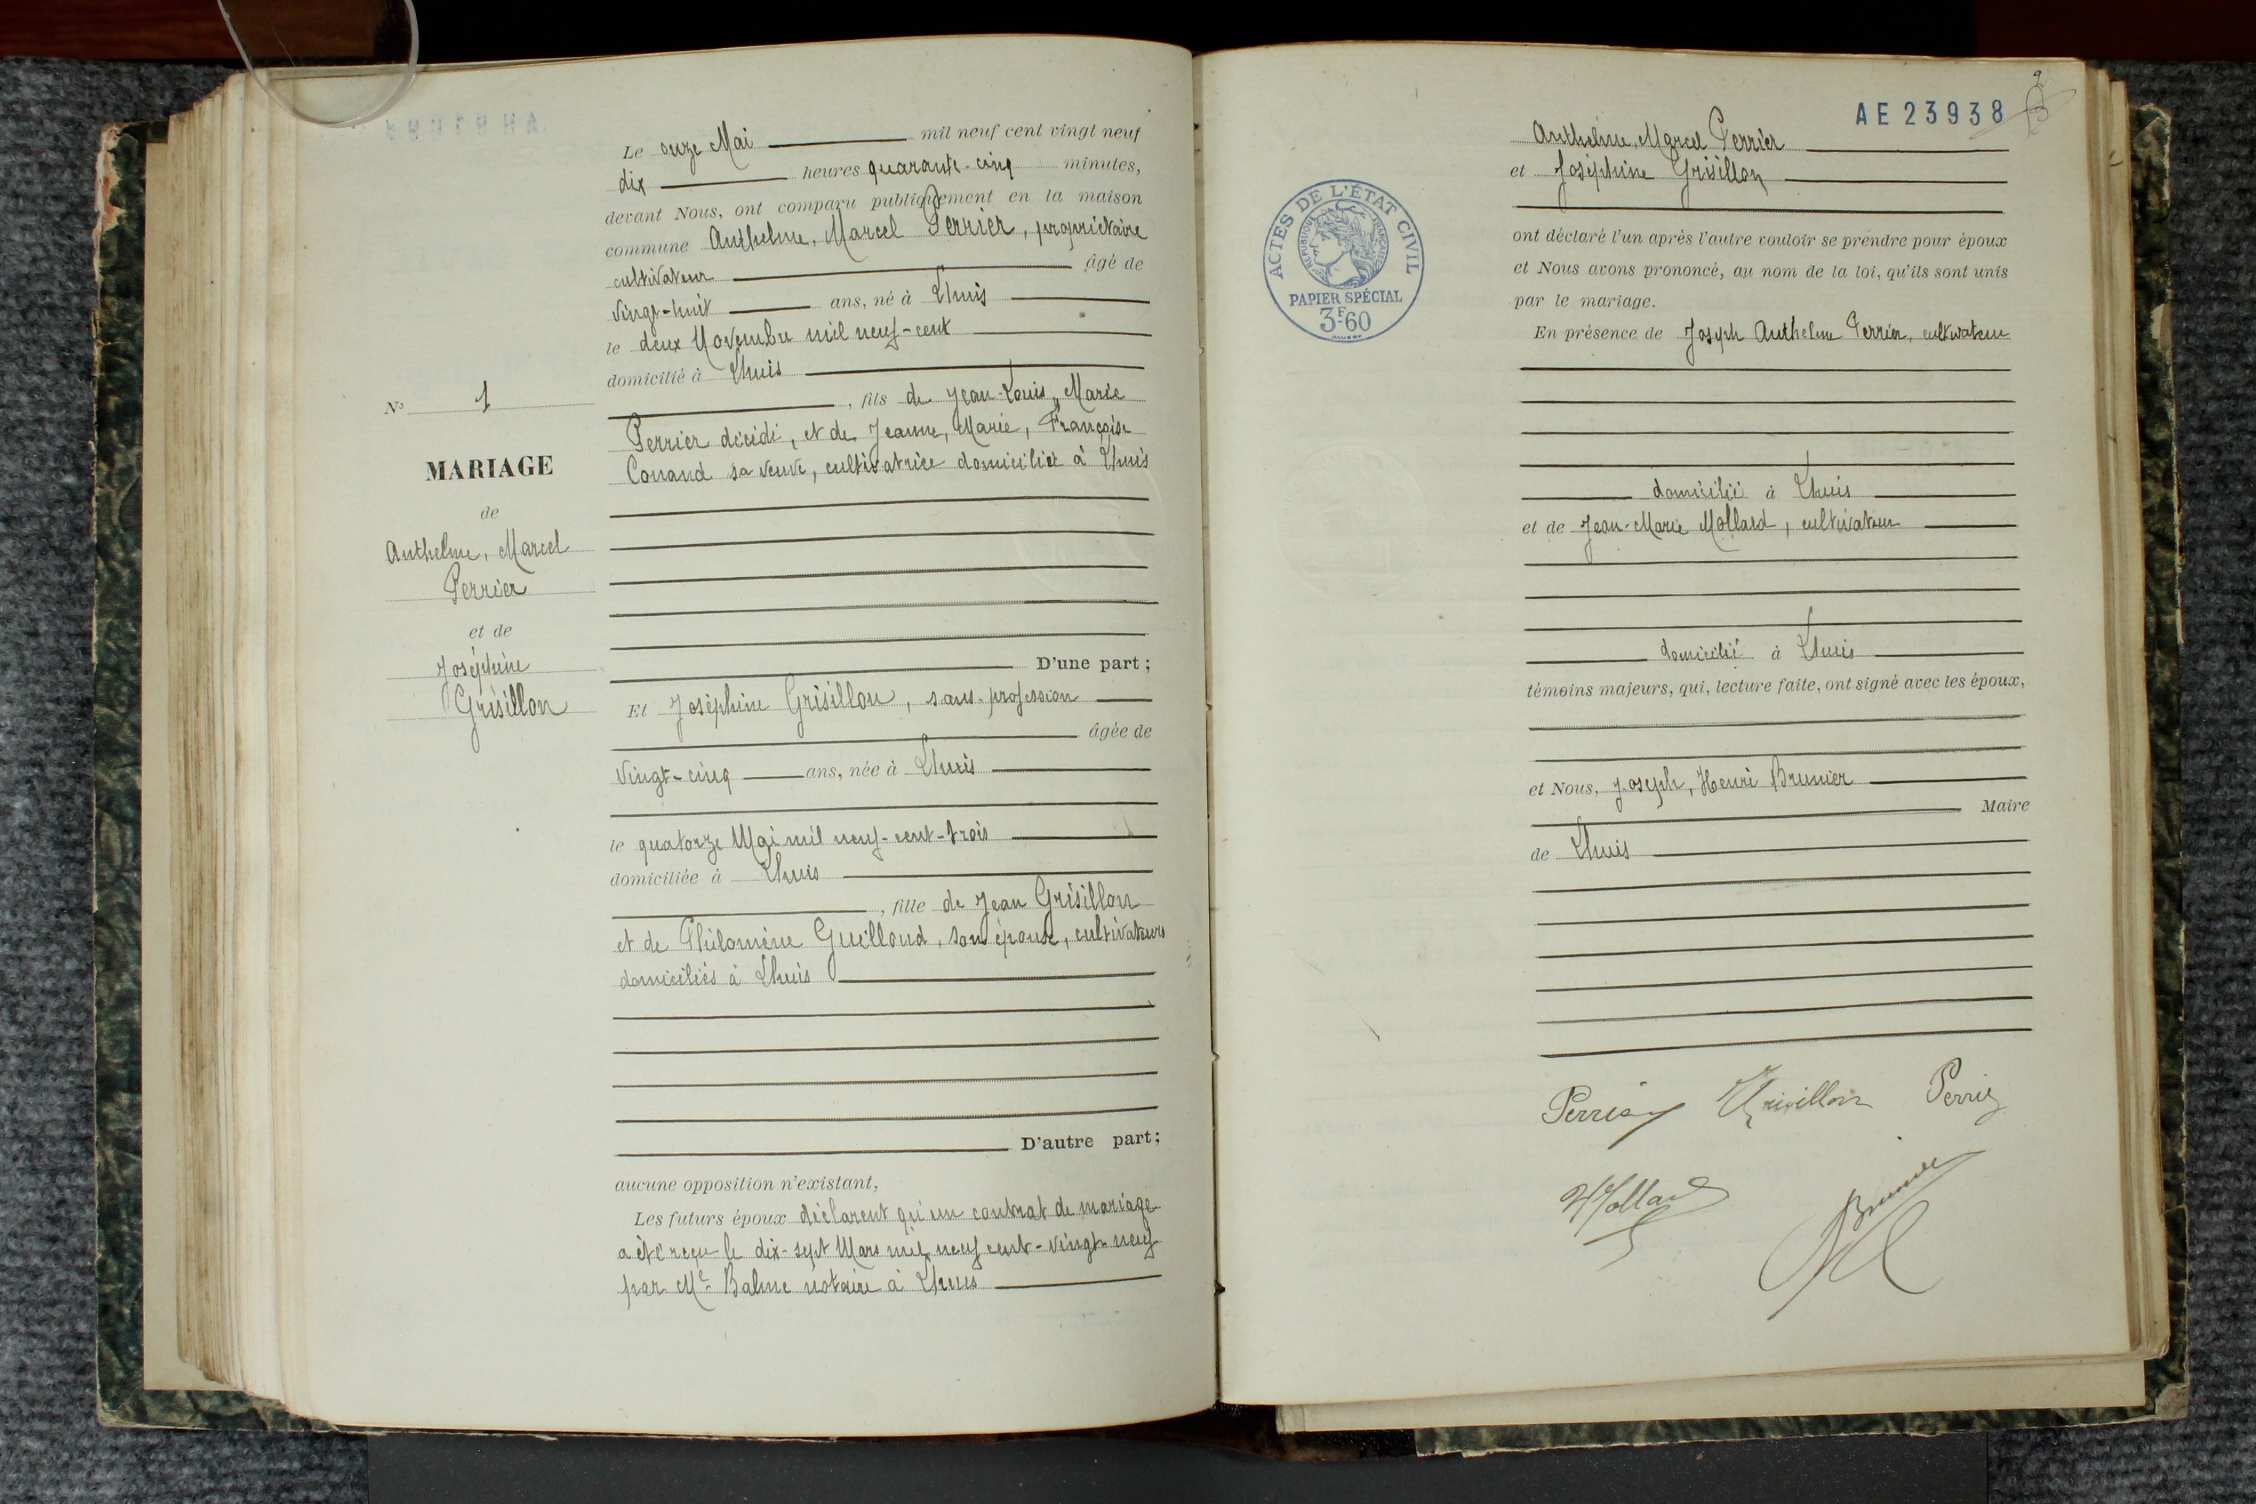 Nº 1
MARIAGE
de
Anthelme, Marcel
Perrier
et de
Joséphine
Grisillon
Le onze Mai mil neuf cent vingt neuf
dix heures quarante-cinq minutes,
devant Nous, ont comparu publiquement en la maison
commune Anthelme, Marcel Perrier, propriétaire
cultivateur âgé de
vingt-huit ans, né à Lhuis
le deux Novembre mil neuf-cent
domicilié à Lhuis
, fils de Jean-Louis, Marie
Perrier décédé, et de Jeanne, Marie, Françoise
Conand sa veuve, cultivatrice domiciliée à Lhuis
D'une part;
Et Joséphine Grisillon, sans profession
âgée de
vingt-cinq ans, née à Lhuis
le quatorze Mai mil neuf-cent-trois
domiciliée à Lhuis
, fille de Jean Grisillon
et de Philomène Guilloud, son épouse, cultivateurs
domiciliés à Lhuis
D'autre part;
aucune opposition n'existant,
Les futurs époux déclarent qu'un contrat de mariage
a été reçu le dix-sept Mars mil neuf cent-vingt-neuf
par Me Balme notaire à Lhuis
AE 23938
ACTES DE L'ÉTAT CIVIL
RÉPUBLIQUE FRANÇAISE
PAPIER SPÉCIAL
3F60
Anthelme, Marcel Perrier
et Joséphine Grisillon
ont déclaré l'un après l'autre vouloir se prendre pour époux
et Nous avons prononcé, au nom de la loi, qu'ils sont unis
par le mariage.
En présence de Joseph Anthelme Perrier, cultivateur
domicilié à Lhuis
et de Jean-Marie Mollard, cultivateur
domicilié à Lhuis
témoins majeurs, qui, lecture faite, ont signé avec les époux,
et Nous, Joseph, Henri Brunier
Maire
de Lhuis
Perrier Grisillon Perrier
Mollard
Brunier